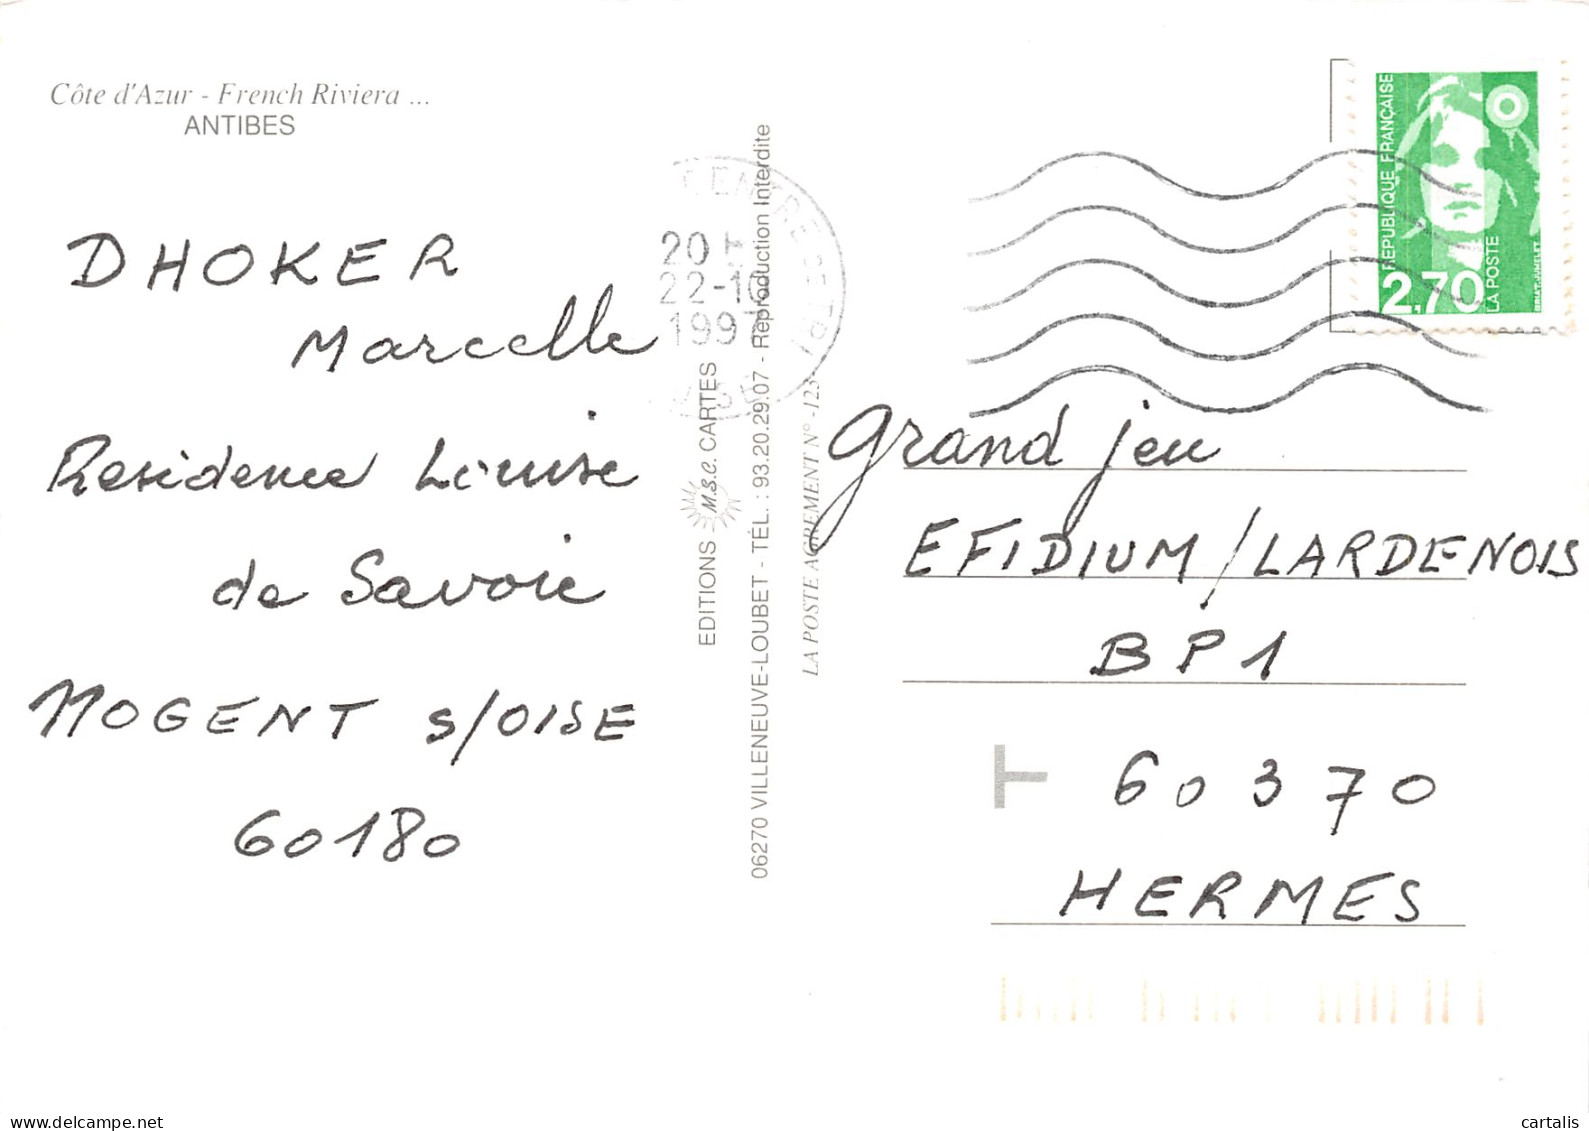 Côte d'Azur - French Riviera ...
ANTIBES
DHOKER
Marcelle
Residence Louise
de Savoie
NOGENT S/OISE
60180
20 H
22-10
199
EDITIONS M.S.C. CARTES
06270 VILLENEUVE-LOUBET - TÉL. : 93.20.29.07 - Reproduction Interdite
LA POSTE AGREMENT N° -123-
REPUBLIQUE FRANÇAISE
2,70
LA POSTE
Grand jeu
EFIDIUM/LARDENOIS
BP1
T
60370
HERMES
delcampe.net
cartalis